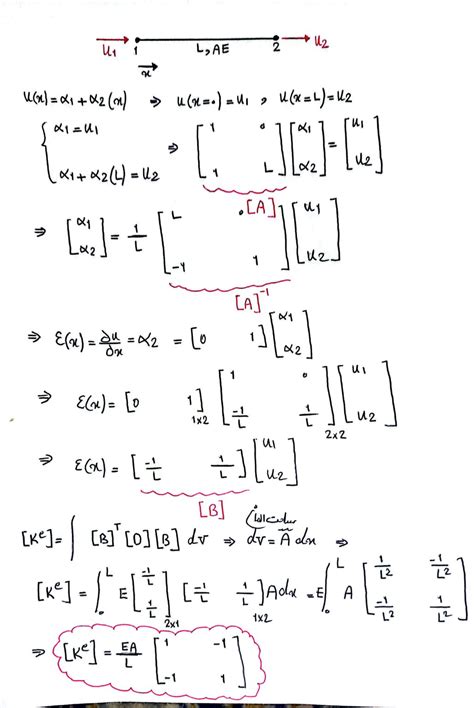 u₁ 1 L, AE 2 u₂
x
u(x) = α₁ + α₂(x) ⇒ u(x=۰) = u₁ , u(x=L) = u₂
{ α₁ = u₁ ; α₁ + α₂(L) = u₂ ⇒ [1 ۰; 1 L] [α₁; α₂] = [u₁; u₂]
[A]
⇒ [α₁; α₂] = 1/L [L ۰; -1 1] [u₁; u₂]
[A]⁻¹
⇒ ε(x) = ∂u/∂x = α₂ = [0 1] [α₁; α₂]
⇒ ε(x) = [0 1]₁ₓ₂ [1 ۰; -1/L 1/L]₂ₓ₂ [u₁; u₂]
⇒ ε(x) = [-1/L 1/L] [u₁; u₂]
[B]
[Kᵉ] = ∫ [B]ᵀ [D] [B] dv ⇒ dv = A dx ⇒
[Kᵉ] = ∫₀ᴸ E [-1/L; 1/L]₂ₓ₁ [-1/L 1/L]₁ₓ₂ A dx = E ∫₀ᴸ A [1/L² -1/L²; -1/L² 1/L²]
⇒ [Kᵉ] = EA/L [1 -1; -1 1]